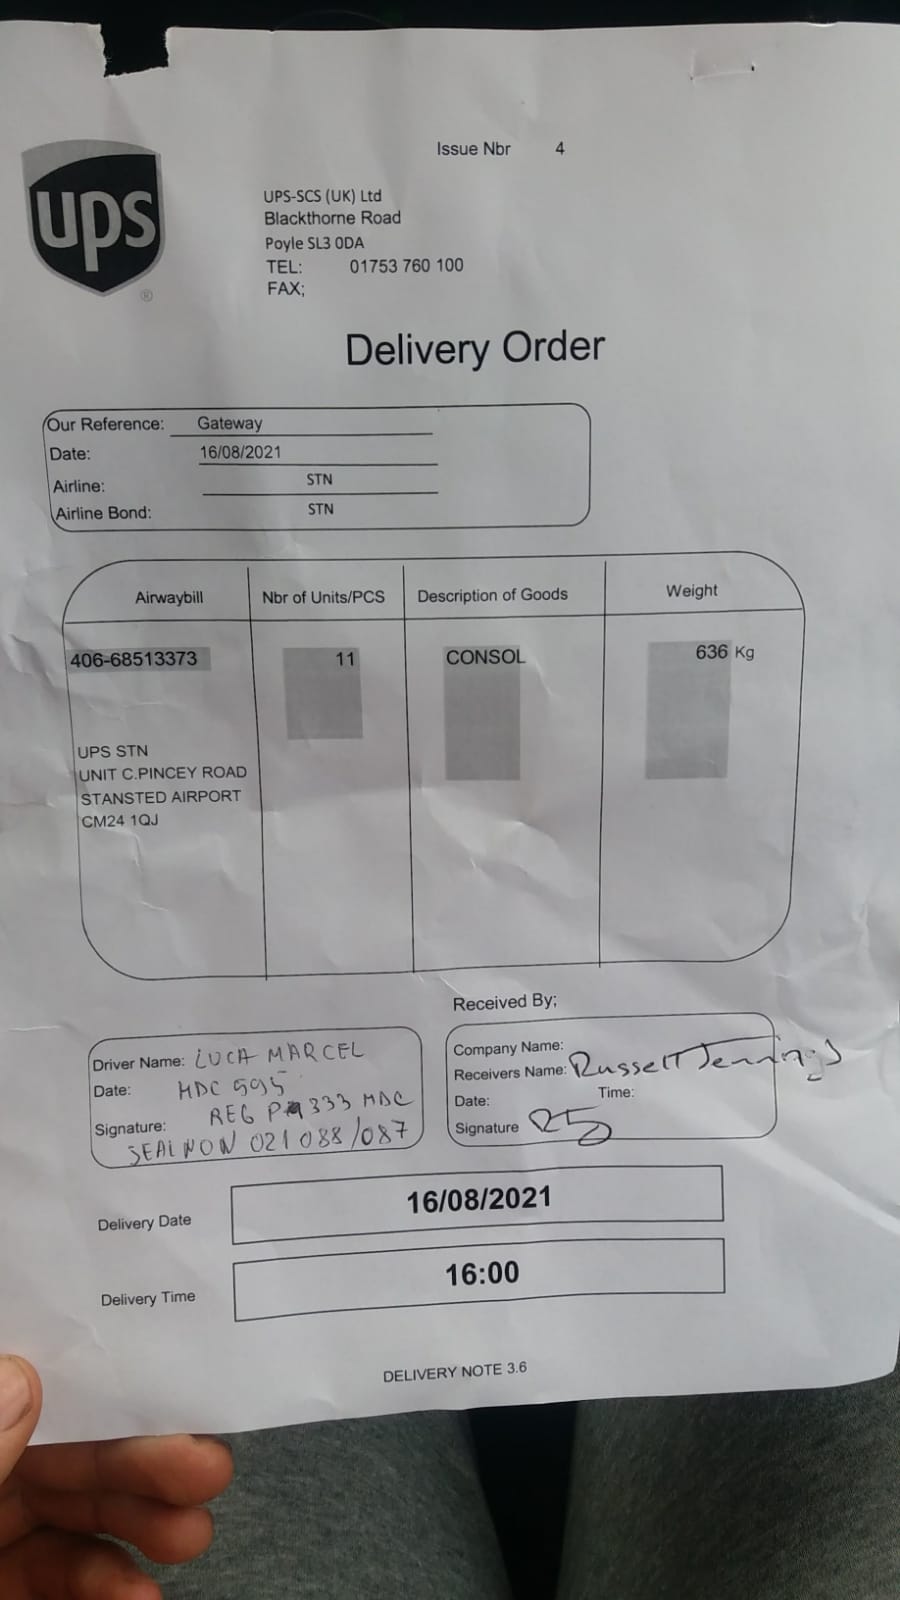 ups
®
Issue Nbr 4
UPS-SCS (UK) Ltd
Blackthorne Road
Poyle SL3 0DA
TEL: 01753 760 100
FAX;
Delivery Order
Our Reference: Gateway
Date: 16/08/2021
Airline: STN
Airline Bond: STN
Airwaybill Nbr of Units/PCS Description of Goods Weight
406-68513373 11 CONSOL 636 Kg
UPS STN
UNIT C.PINCEY ROAD
STANSTED AIRPORT
CM24 1QJ
Received By;
Driver Name: LUCA MARCEL
Date: HDC 595
Signature: REG 333 HDC
SEAL NON 021088/087
Company Name:
Receivers Name: Russell Jennings
Date: Time:
Signature
Delivery Date 16/08/2021
Delivery Time 16:00
DELIVERY NOTE 3.6